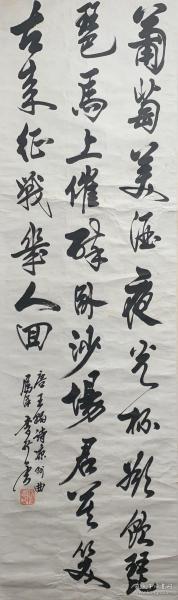 葡萄美酒夜光杯欲飲琵
琶馬上催醉卧沙場君莫笑
古来征戰幾人回
唐王翰诗凉州曲